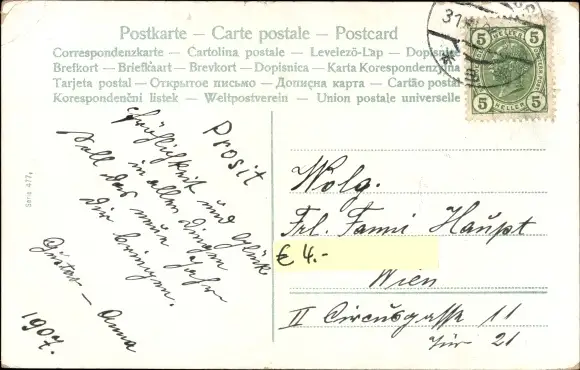 Postkarte – Carte postale – Postcard
Correspondenzkarte — Cartolina postale — Levelező-Lap — Dopisnice
Brefkort — Briefkaart — Brevkort — Dopisnica — Karta Korespondenzyjna
Tarjeta postal — Открытое письмо — Дописна карта — Cartão postal
Korespondenční listek — Weltpostverein — Union postale universelle
31
5 5
5 HELLER 5
Prosit
Fröhlichkeit und Glück
in allen Dingen
Soll das neue Jahr
Dir bringen.
Gustav – Anna
1907.
Serie 477,
Wolg.
Frl. Fanni Haupt
€ 4.-
Wien
II Circusgasse 11
Tür 21